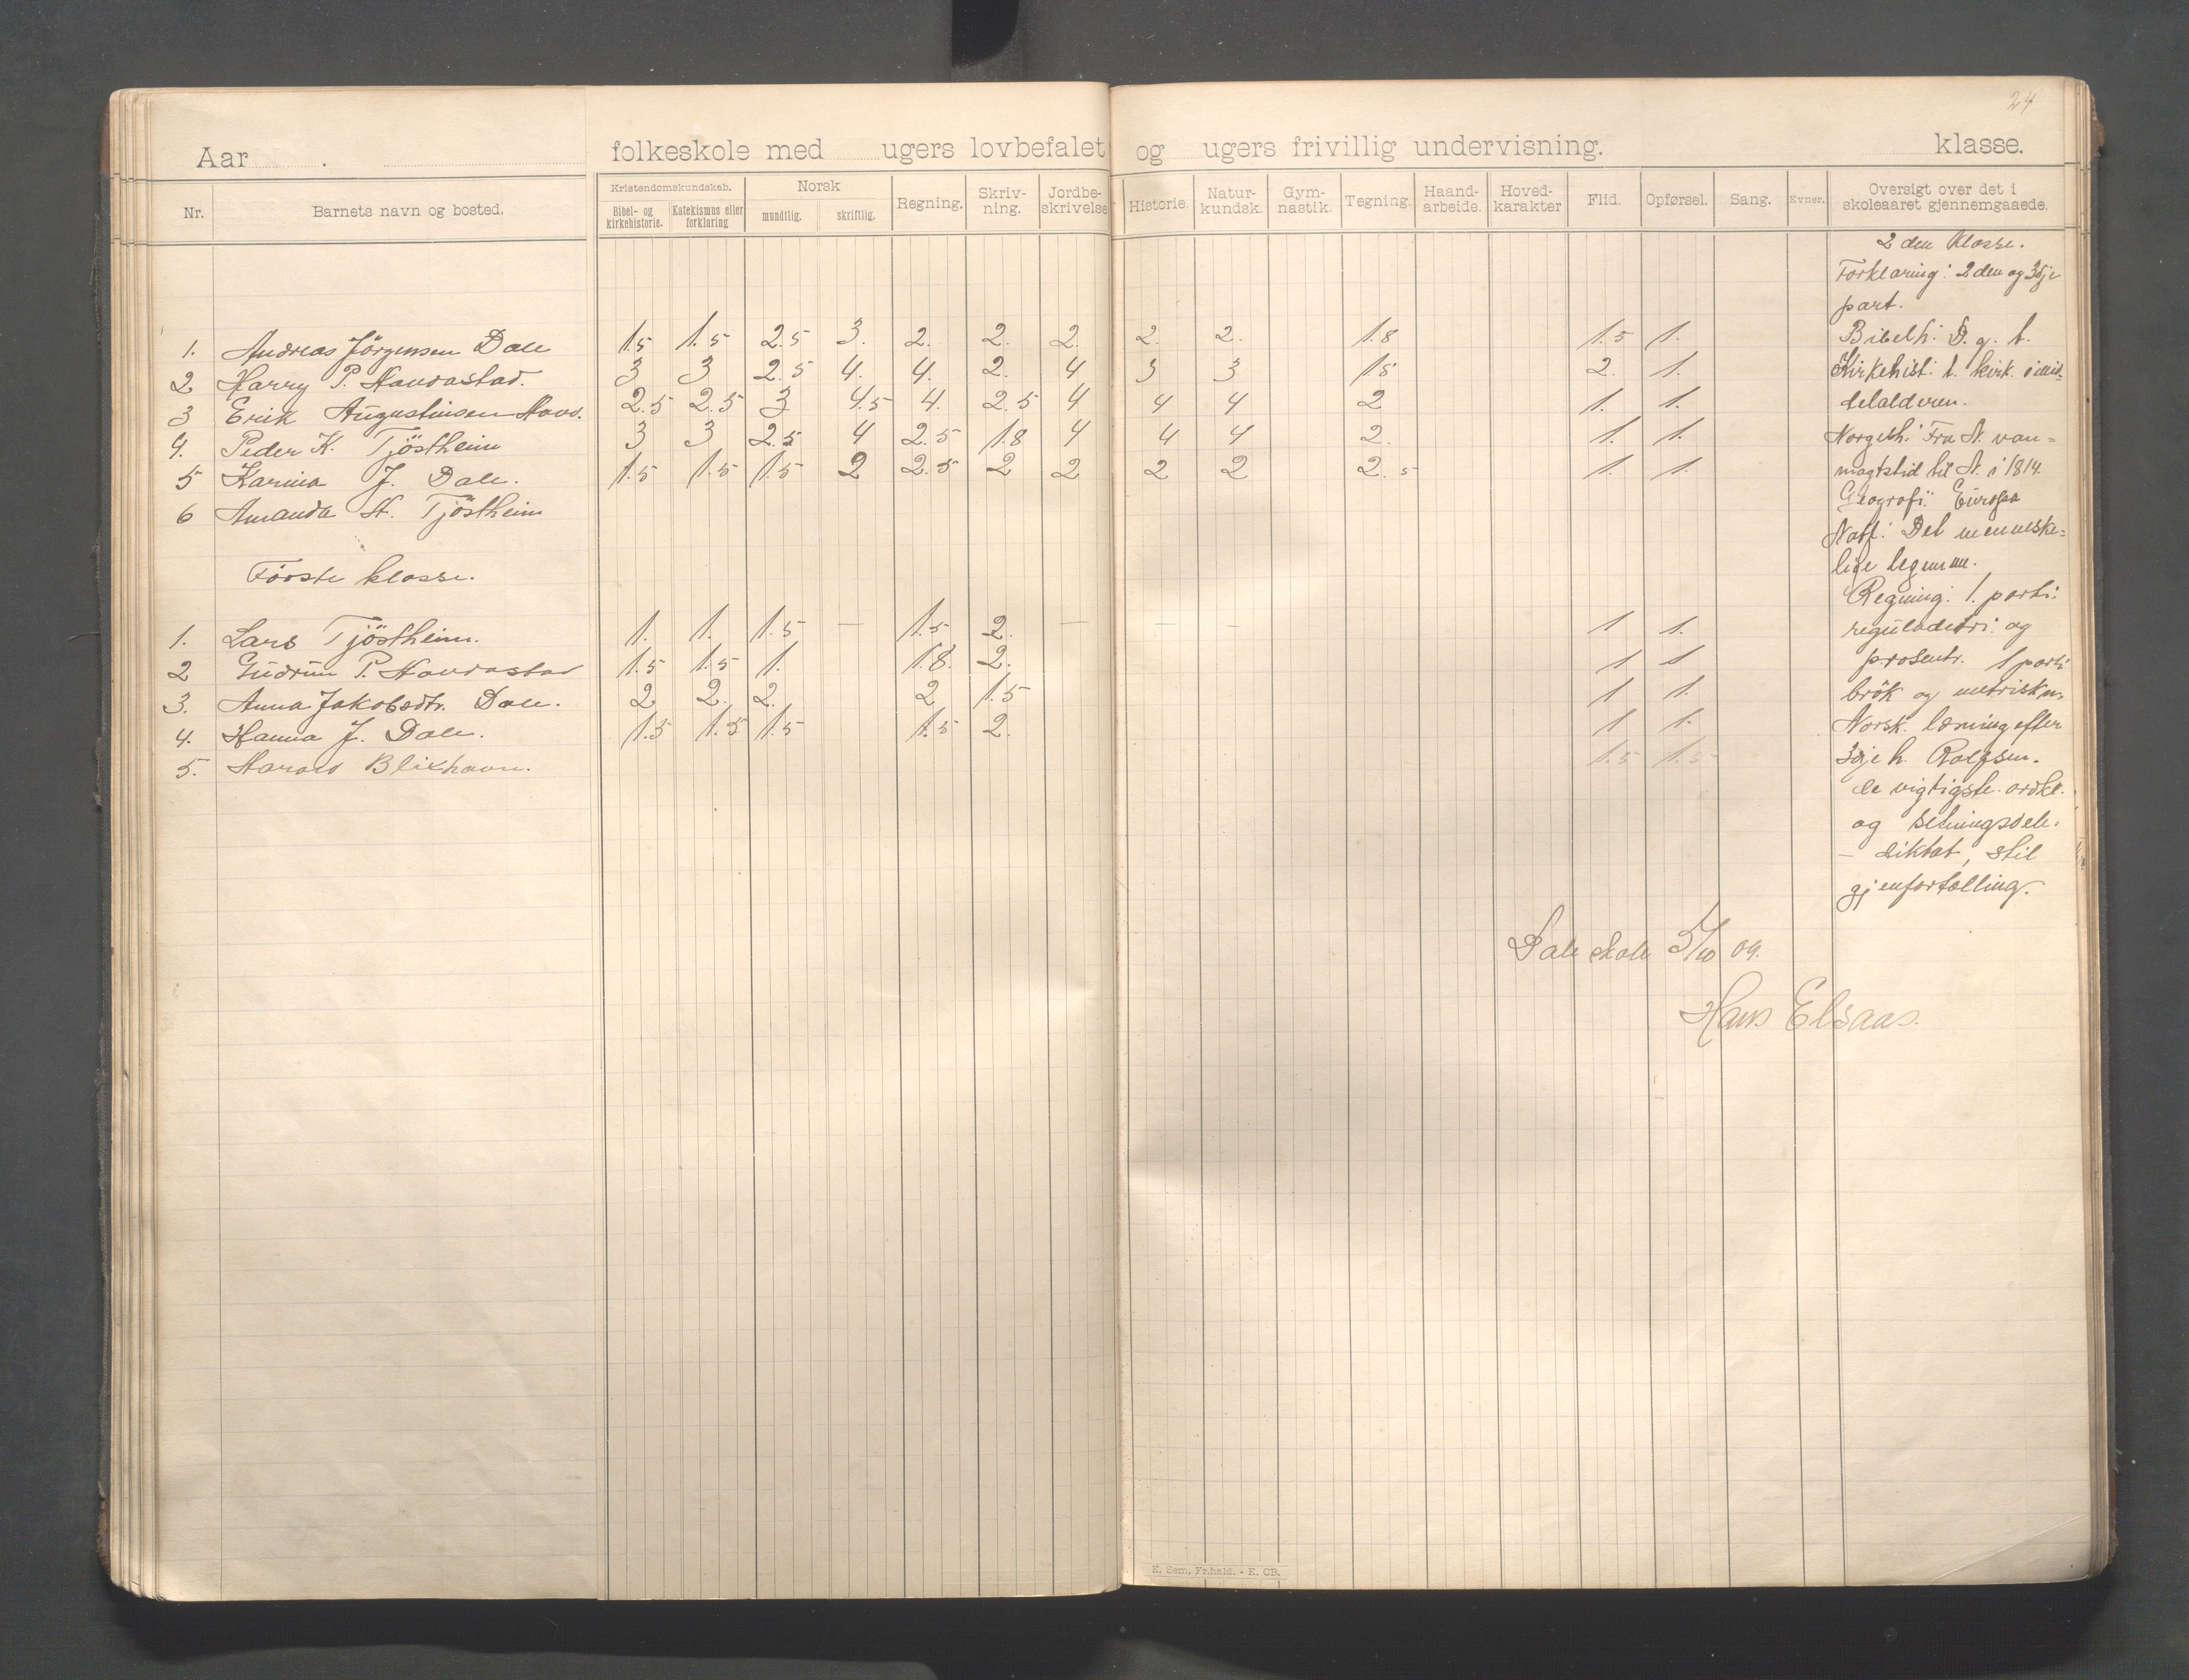 24
Aar . folkeskole med ugers lovbefalet og ugers frivillig undervisning. klasse.
Nr. Barnets navn og bosted. Kristendomskundskab. Bibel- og kirkehistorie. Katekismus eller forklaring Norsk mundtlig. skriftlig. Regning. Skriv-ning. Jordbe-skrivelse Historie. Natur-kundsk. Gym-nastik. Tegning. Haand-arbeide. Hoved-karakter Flid. Opførsel. Sang. Evner. Oversigt over det i skoleaaret gjennemgaaede.
1. Andreas Jörgensen Dale 1.5 1.5 2.5 3. 2. 2. 2. 2. 2. 1.8 1.5 1.
2 Harry P. Havdastad. 3 3 2.5 4. 4. 2. 4 3 3 1.5 2. 1.
3 Erik Augustinsen Havd. 2.5 2.5 3 4.5 4. 2.5 4 4 4 2 1. 1.
4. Peder K. Tjöstheim 3 3 2.5 4 2.5 1.8 4 4 4 2. 1. 1.
5 Karina J. Dale. 1.5 1.5 1.5 2 2.5 2 2 2 2 2.5 1. 1.
6 Amanda N. Tjöstheim
Förste klasse.
1. Lars Tjöstheim. 1. 1. 1.5 — 1.5 2. — — — 1 1.
2 Gudrun P. Havdastad 1.5 1.5 1. 1.8. 2. 1 1
3. Anna Jakobsdtr. Dale. 2 2. 2. 2 1.5 1 1.
4. Hanna J. Dale. 1.5 1.5 1.5 1.5 2. 1 1.
5. Harald Blixhavn. 1.5 1.5
2den klasse.
Forklaring: 2den og 3dje
part.
Bibelh: D. g. t.
Kirkehist: t. kirk. i mid-
delalderen.
Norgesh: Fra N. van-
magtstid til N. i 1814.
Geografi: Europa
Natf: Det menneske-
lige legeme.
Regning: 1. parti:
reguladetri og
prosentr. 1 parti
brök og metrisk m.
Norsk. læsning efter
3dje h. Rolfsen.
de vigtigste ordkl.
og setningsdele.
— diktat, stil
gjenfortælling.
Dale skole 5/10 09.
Hans Elsaas.
E. Sem, Fr.hald. - E. OB.